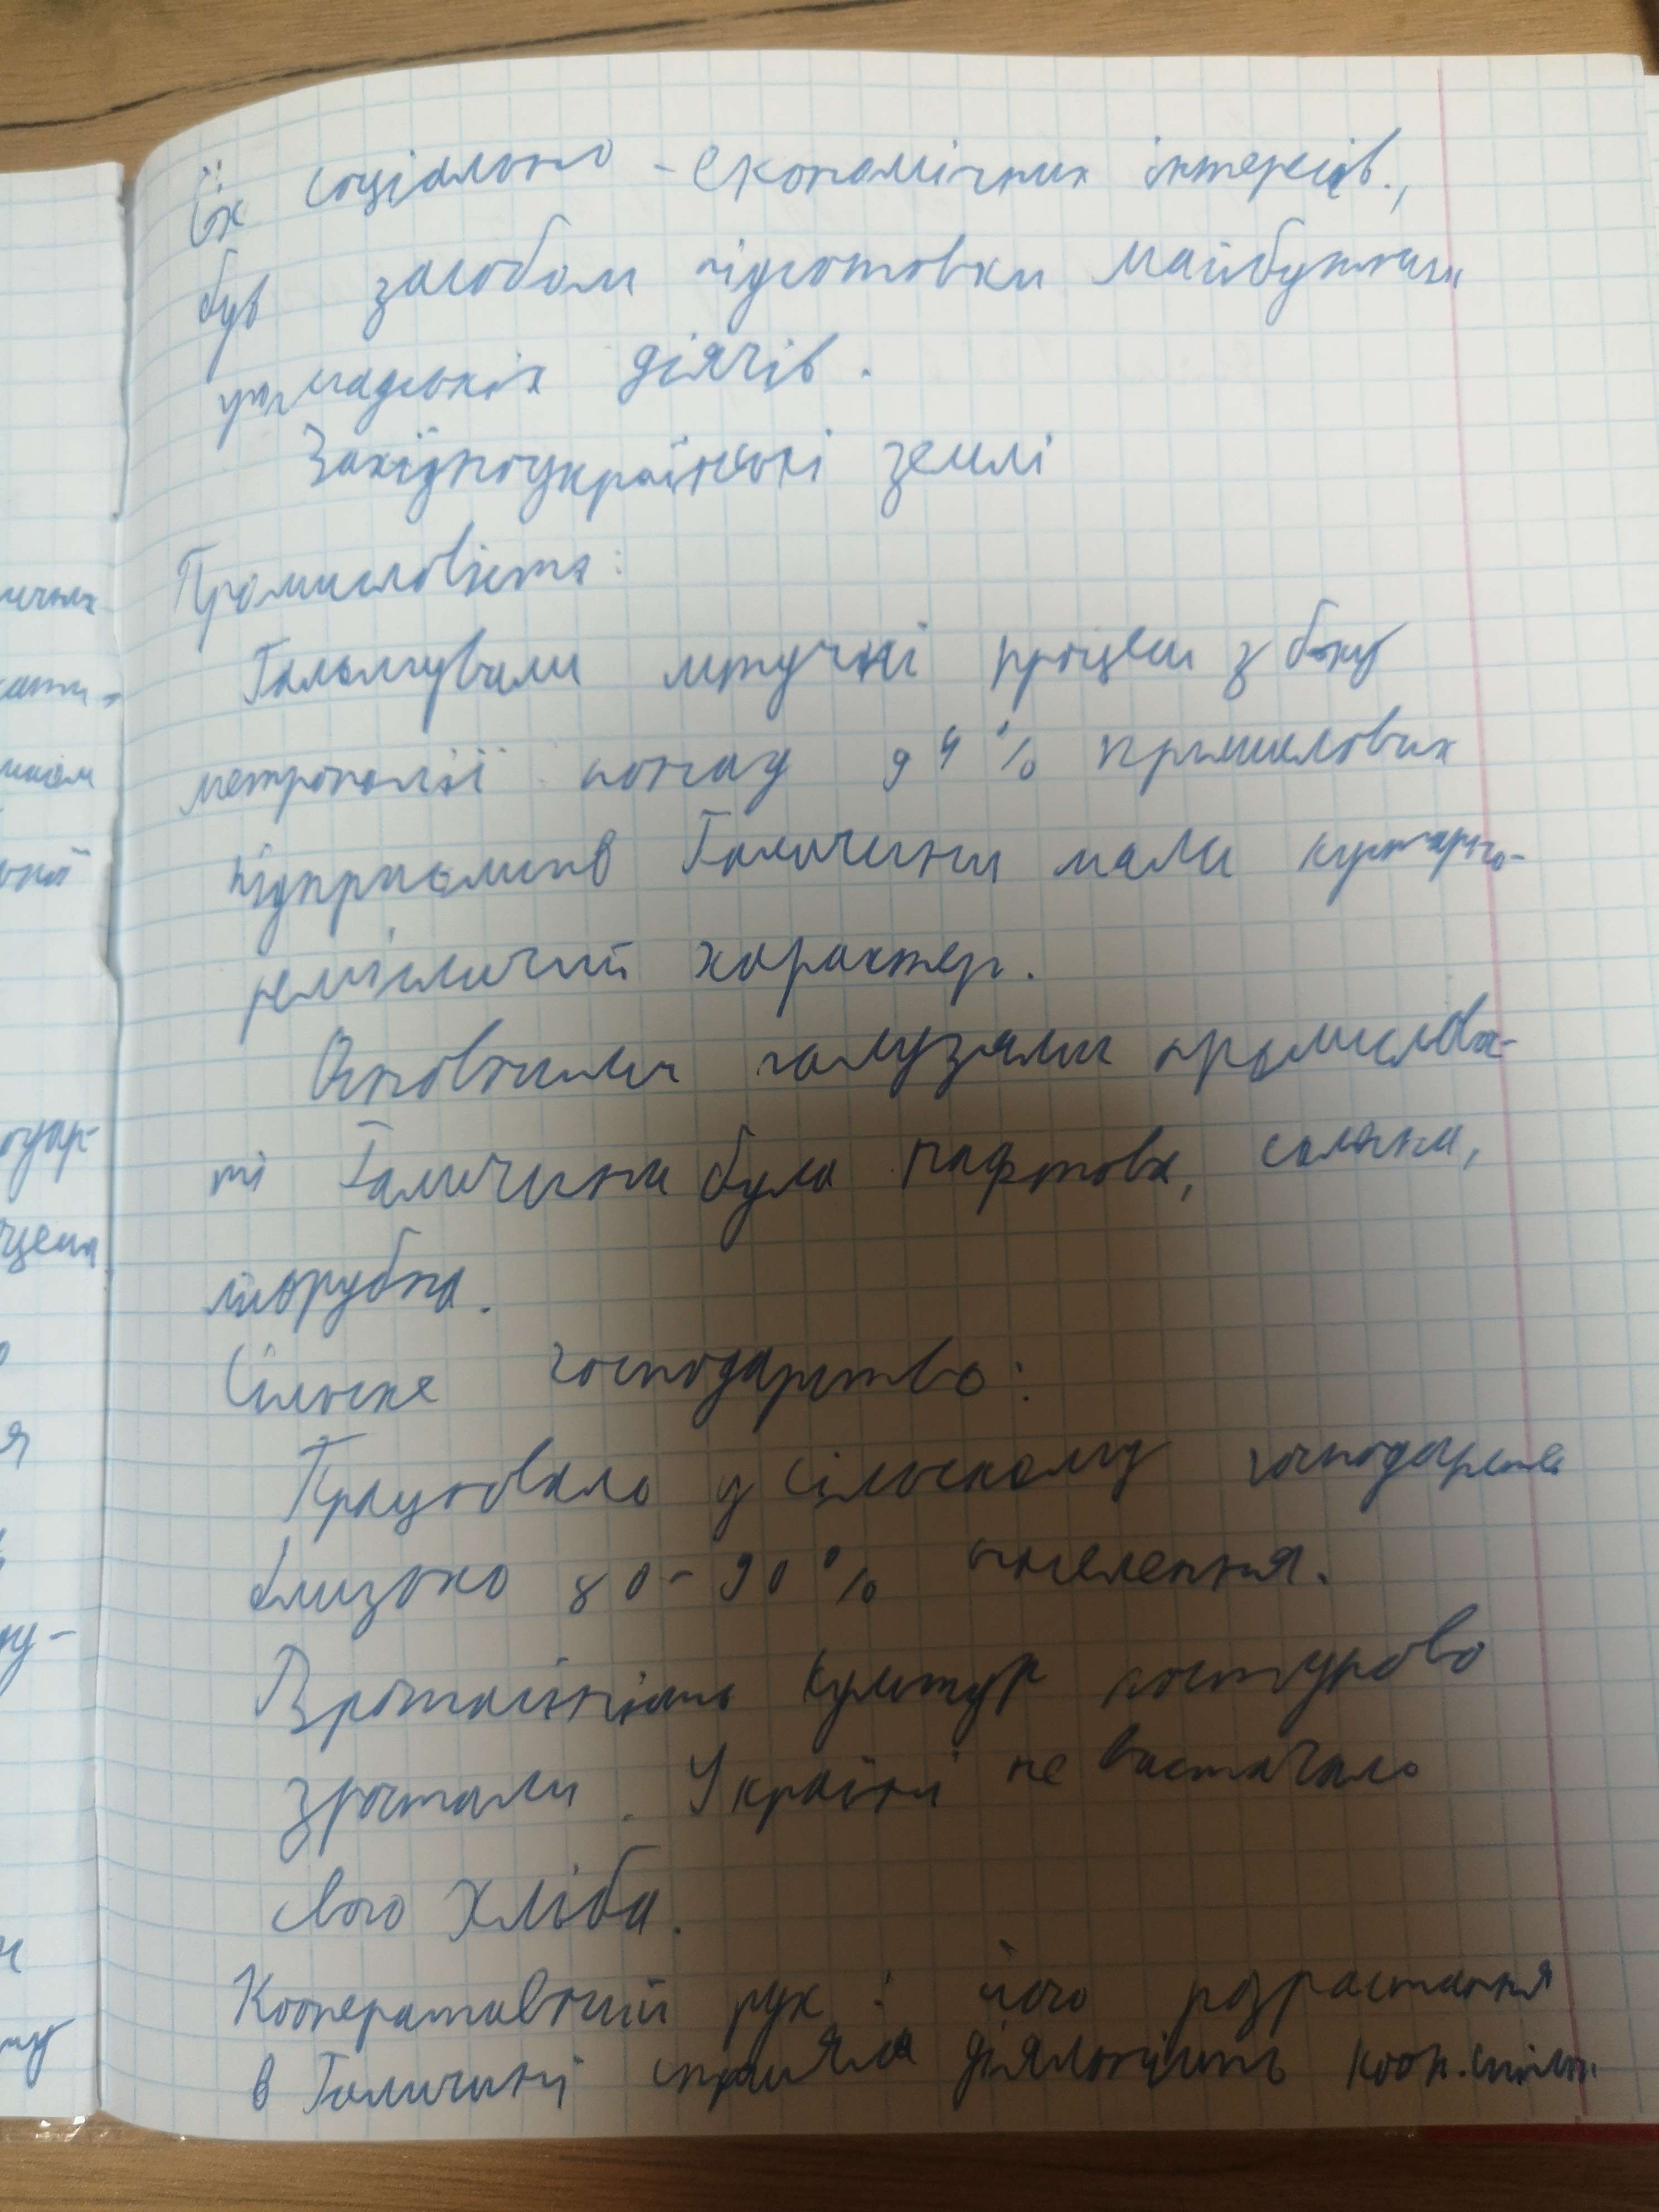 їх соціально - економічних інтересів.,
був засобом підготовки майбутніх
громадських діячів.
Західноукраїнські землі
Промисловість:
Гальмували штучні процеси з боку
метрополії понад 94% промислових
підприємств Галичини мали кустарно-
ремісничий характер.
Основними галузями промисловос-
ті Галичини була нафтова, соляна,
лісорубна.
Сільске господарство:
Працювало у сільскому господарстві
близько 80-90% населення.
Врожайність культур поступово
зростали. Україні не вистачало
свого хліба.
Кооперативний рух : його розрастання
в Галичині сприяла діяльність кооп.